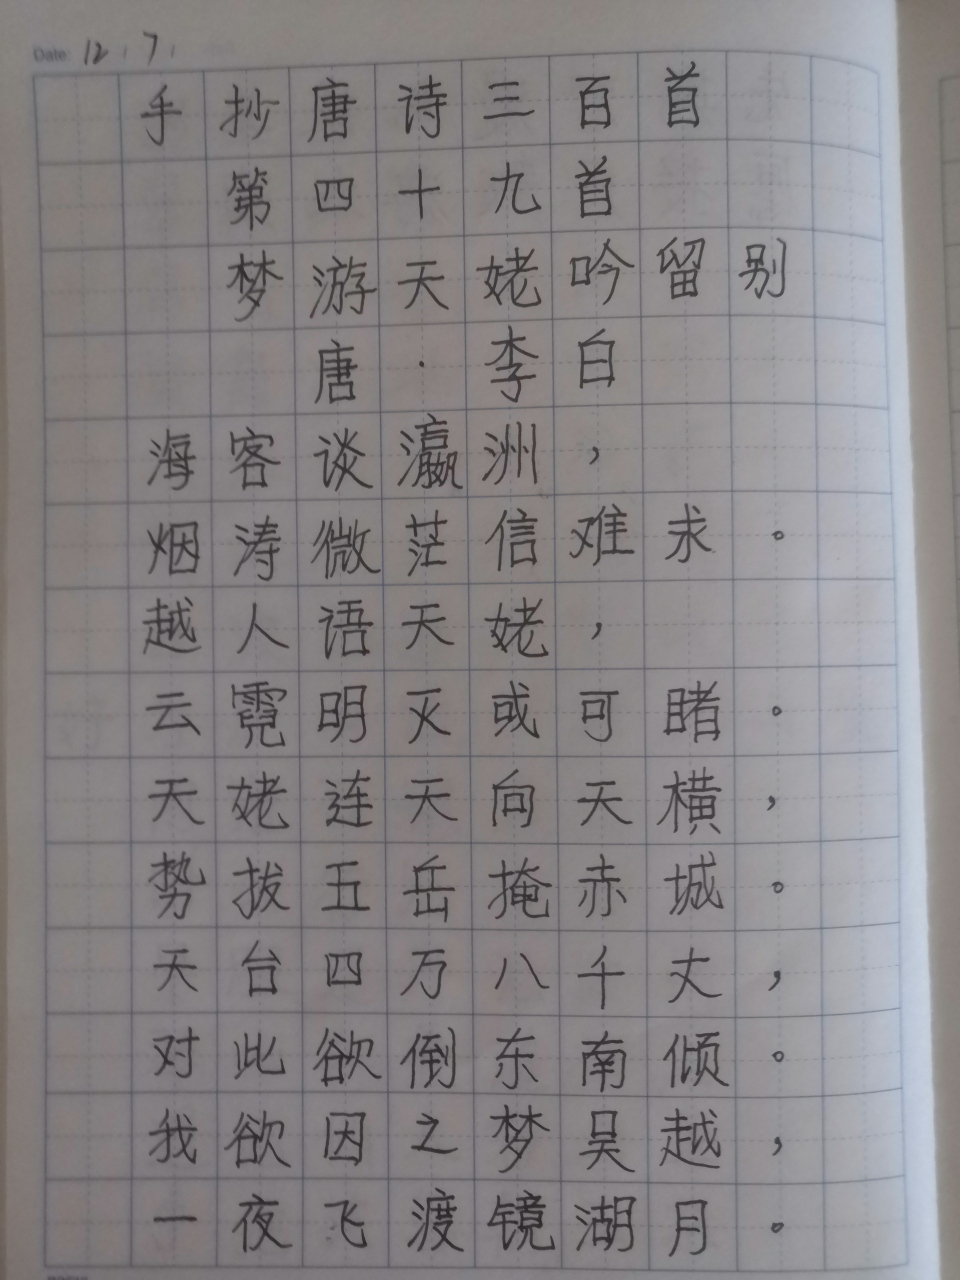 Date 12 / 7 /
手抄唐诗三百首
第四十九首
梦游天姥吟留别
唐·李白
海客谈瀛洲，
烟涛微茫信难求。
越人语天姥，
云霓明灭或可睹。
天姥连天向天横，
势拔五岳掩赤城。
天台四万八千丈，
对此欲倒东南倾。
我欲因之梦吴越，
一夜飞渡镜湖月。